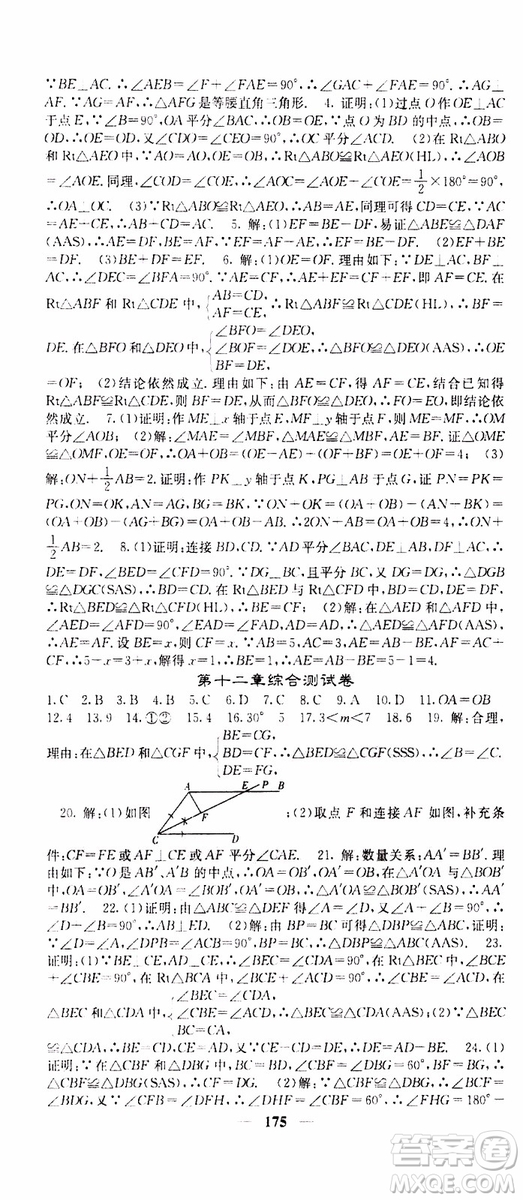 ∵BE⊥AC.∴∠AEB=∠F+∠FAE=90°,∴∠GAC+∠FAE=90°.∴AG⊥
AF.∵AG=AF,∴△AFG是等腰直角三角形. 4. 证明:(1)过点O作OE⊥AC
于点E,∵∠ABD=90°,OA平分∠BAC,∴OB=OE,∵点O为BD的中点,∴OB=
OD,∴OE=OD,又∠CDO=∠CEO=90°,∴OC平分∠ACD. (2)在Rt△ABO
和Rt△AEO中,∵AO=AO,OB=OE,∴Rt△ABO≌Rt△AEO(HL),∴∠AOB
=∠AOE.同理,∠COD=∠COE,∴∠AOC=∠AOE+∠COE=1/2×180°=90°,
∴OA⊥OC. (3)∵Rt△ABO≌Rt△AEO,∴AB=AE.同理可得CD=CE,∵AC=
AE+CE,∴AB+CD=AC. 5. 解:(1)EF=BE-DF.易证△ABE≌△DAF
(AAS),∴AE=DF,BE=AF,∵EF=AF-AE,∴EF=BE-DF. (2)EF=DF
-BE. (3)BE+DF=EF. 6. 解:(1)OE=OF.理由如下:∵DE⊥AC,BF⊥
AC,∴∠DEC=∠BFA=90°.∵AE=CF,∴AE+EF=CF+EF,即AF=CE.在
Rt△ABF和Rt△CDE中,{AB=CD,
AF=CE,∴Rt△ABF≌Rt△CDE(HL),∴BF=
DE.在△BFO和△DEO中,{∠BFO=∠DEO,
∠BOF=∠DOE,
BF=DE,∴△BFO≌△DEO(AAS),∴OE
=OF; (2)结论依然成立.理由如下:由AE=CF,得AF=CE,结合已知得
Rt△ABF≌Rt△CDE,∴BF=DE,从而△BFO≌△DEO,∴FO=EO,即结论依
然成立. 7. (1)证明:作ME⊥x轴于点E,MF⊥y轴于点F,∴ME=MF,∴OM
平分∠AOB; (2)解:∠MAE=∠MBF,∴△MAE≌△MBF(AAS),∴△OME≌
△OMF,OE=OF,∴OA+OB=(OE-AE)+(OF+BF)=OE+OF=4; (3)
解:ON+1/2AB=2.证明:作PK⊥y轴于点K,PG⊥AB于点G,∴PN=PK=
PG,∴ON=OK,AN=AG,BG=BK=OB-OK,∴2ON=ON+OK=
(OA+OB)-(AN+BK)=(OA+OB)-(AG+BG)=(OA+OB)-AB,∴ON+
1/2AB=2. 8. (1)证明:连接BD,CD.∵AD平分∠BAC,DE⊥AB,DF⊥AC,∴DE
=DF,∠BED=∠CFD=90°.∵DG⊥BC,且平分BC,∴BG=CG,∴△DGB
≌△DGC(SAS),∴BD=CD.在Rt△BED和Rt△CFD中,BD=CD,DE=DF,
∴Rt△BED≌Rt△CFD(HL),∴BE=CF; (2)解:在△AED和△AFD中,
∠AED=∠AFD=90°,∠EAD=∠FAD,AD=AD,∴△AED≌△AFD(AAS),
∴AE=AF.设BE=x,则CF=x,∵AB=5,AC=3,AE=AB-BE,AF=AC+
CF,∴5-x=3+x,解得x=1.∴BE=1,AE=AB-BE=5-1=4.
第十二章综合测试卷
12.4 13.9 14.①② 15.4 16.30° 17.3<m<7 18.6 19.解:合理,
理由:在△BED和△CGF中,{BE=CG,
BD=CF,
DE=FG,∴△BED≌△CGF(SSS),∴∠B=∠C.
20. 解:(1)如图
A
E
P
B
F
C
D
;(2)取点F和连接AF如图,补充条
件:CF=FE或AF⊥CE或AF平分∠CAE. 21. 解:数量关系:AA'=BB'.理
由如下:∵O是AB',A'B的中点,∴OA=OB',OA'=OB,又∠A'OA=
∠B'OB,∴△A'OA与△BOB'中,∴△A'OA≌△BOB'(SAS),∴AA'=
BB' 22. (1)证明:由△ABC≌△DEF得∠A=∠D,又∠ANP=∠DNC,∴∠APN
=∠DCN,∴AB⊥ED. (2)解:由BP=BC可得△DBP≌△ABC(AAS). 23.
证明:(1)∵BE⊥CE,AD⊥CE,∴∠BEC=∠ADC=90°,∴∠BCE+
∠CBE=90°.在Rt△BCA中,∠BCE+∠ACD=90°,∴∠CBE=∠ACD. (2)在
△BEC和△CDA中,{∠BEC=∠CDA,
∠CBE=∠ACD,∴△BEC≌△CDA(AAS).
BC=CA,
24.(1)
证明:∵在△CBF和△DBG中,BC=BD,∠CBF=∠DBG=60°,BF=BG,
∴△CBF≌△DBG(SAS),∴CF=DG. (2)解:∵△CBF≌△DBG,∴∠BCF
=∠BDG,又∠CFB=∠DFH,∴∠DHF=∠CBF=60°,∴∠FHG=180°-
∠DHF=180°-60°=120°.
175
答案圈